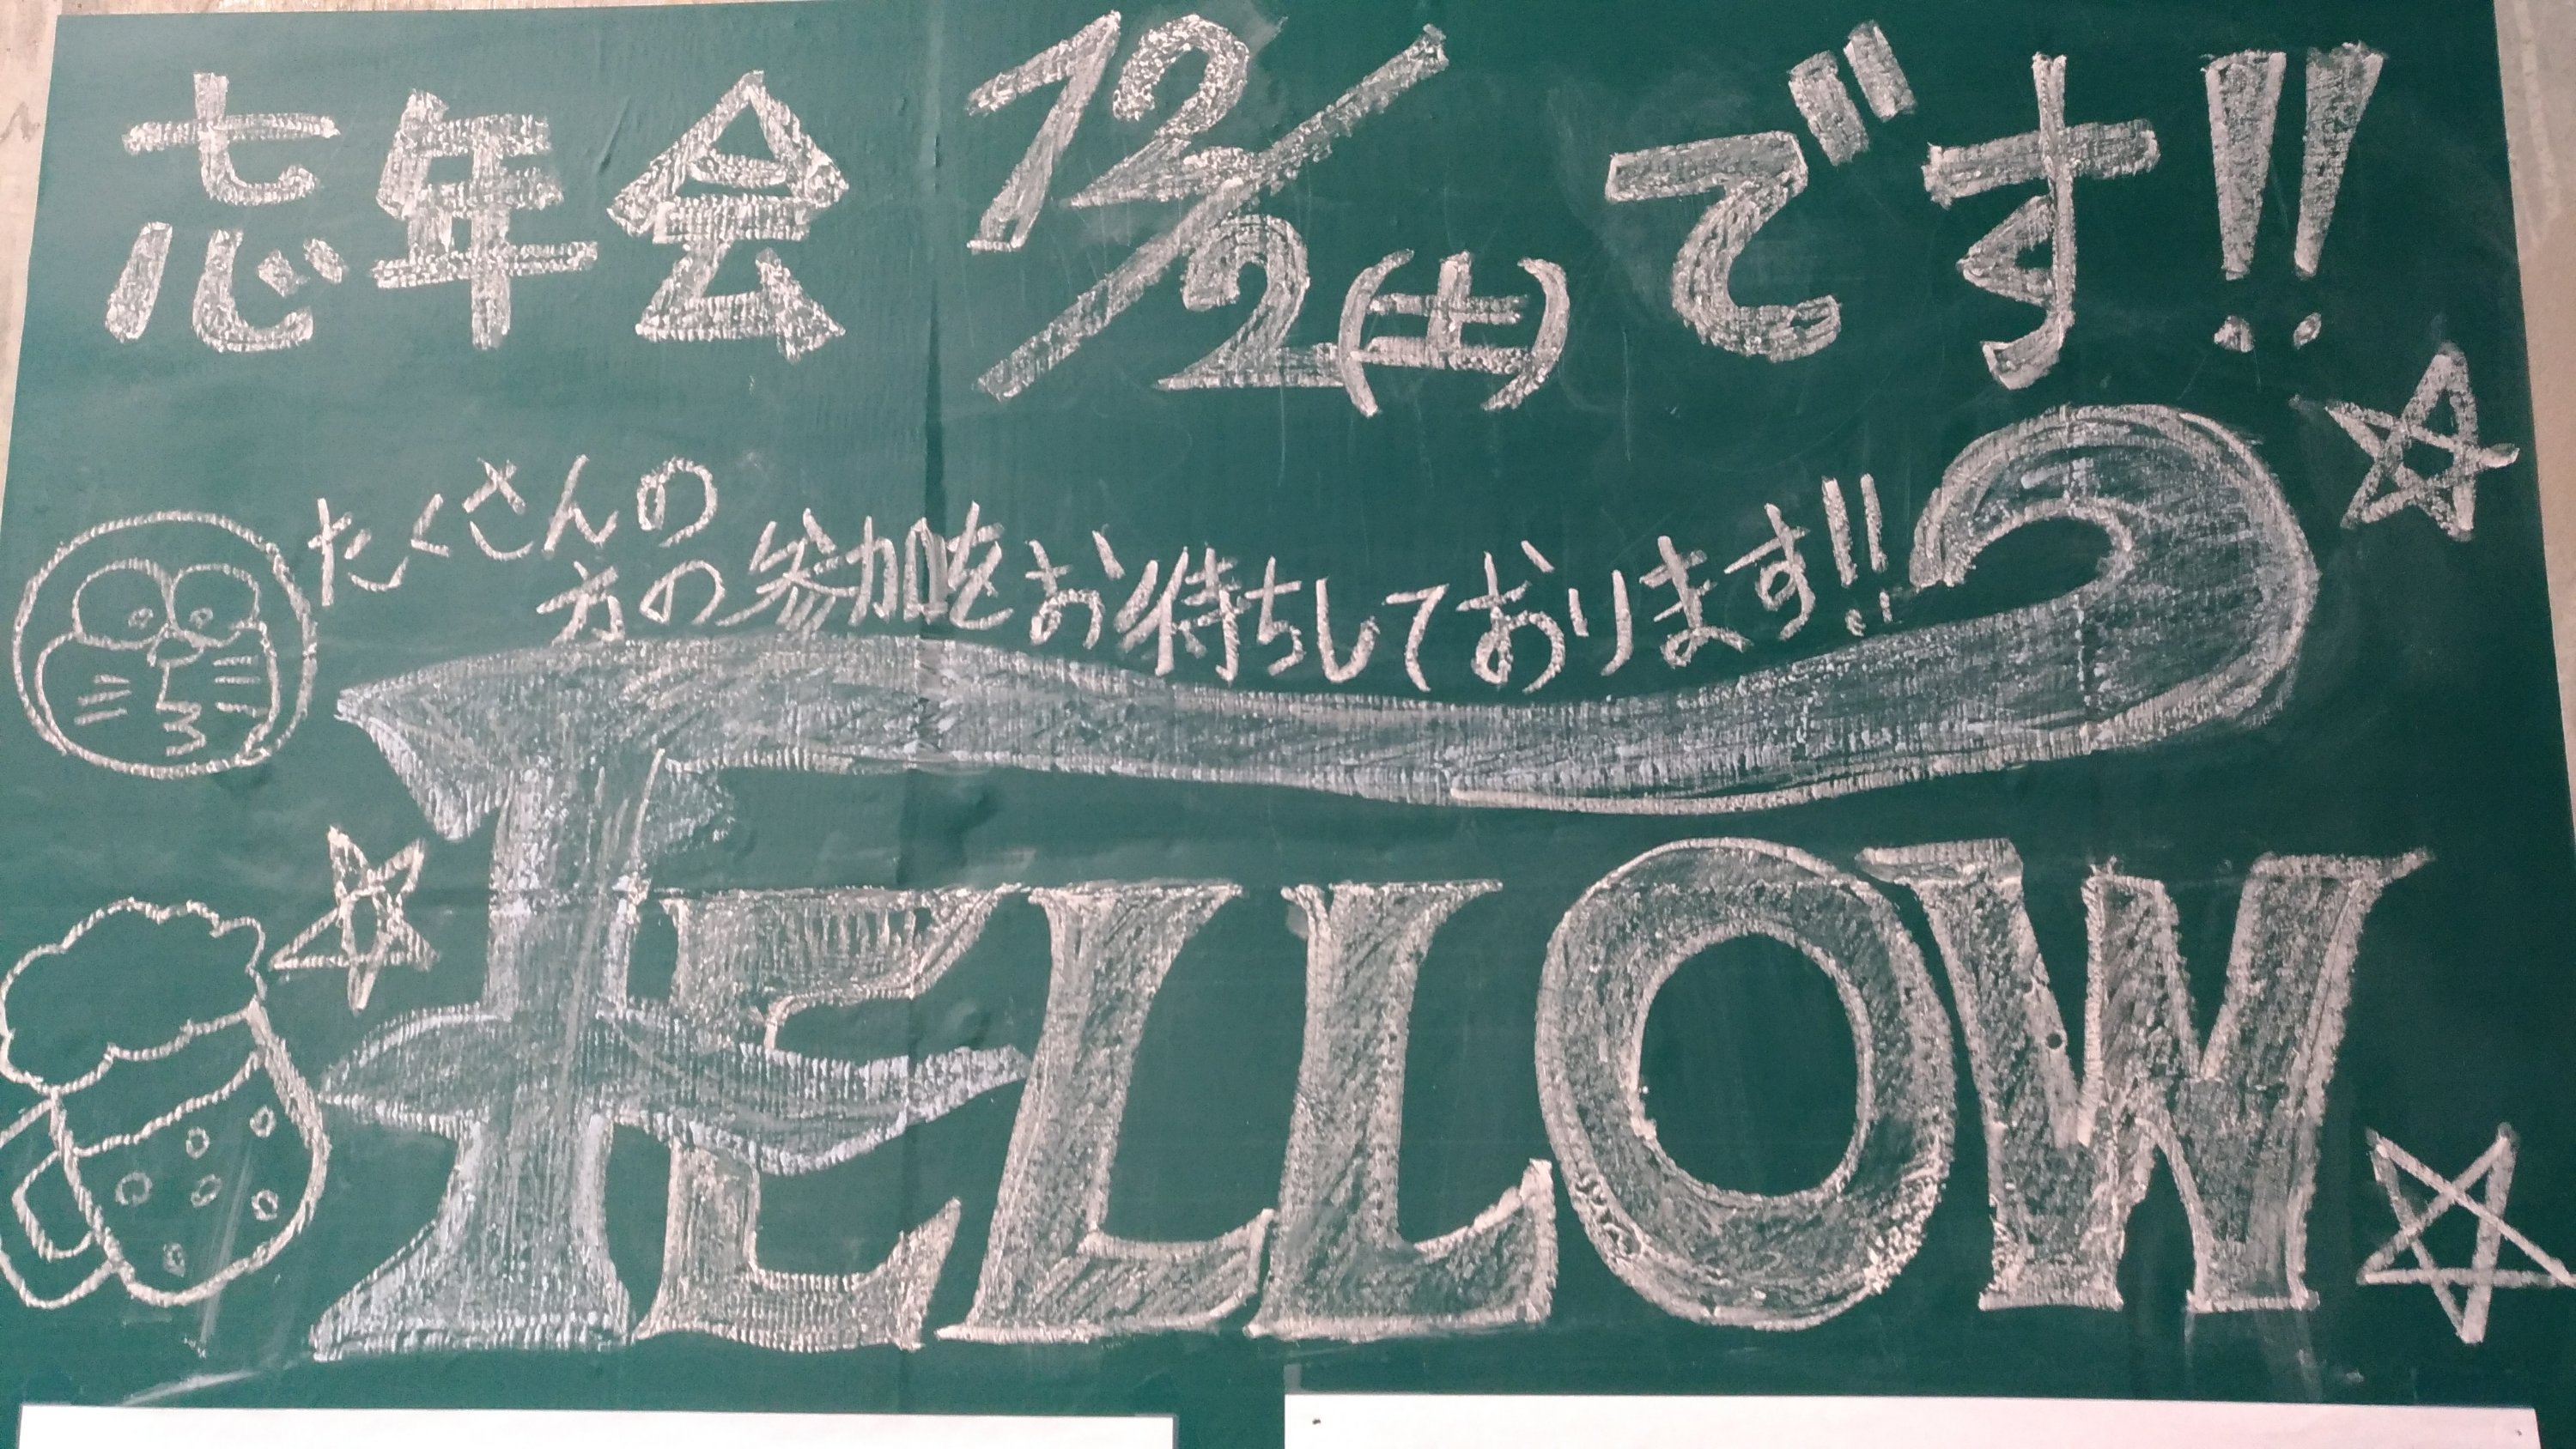 忘年会 12/2(土)です!!
たくさんの
方の参加をお待ちしております!!
FELLOW